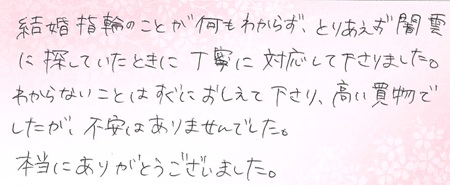 結婚指輪のことが何もわからず、とりあえず闇雲
に探していたときに丁寧に対応して下さりました。
わからないことはすぐにおしえて下さり、高い買物で
したが、不安はありませんでした。
本当にありがとうございました。